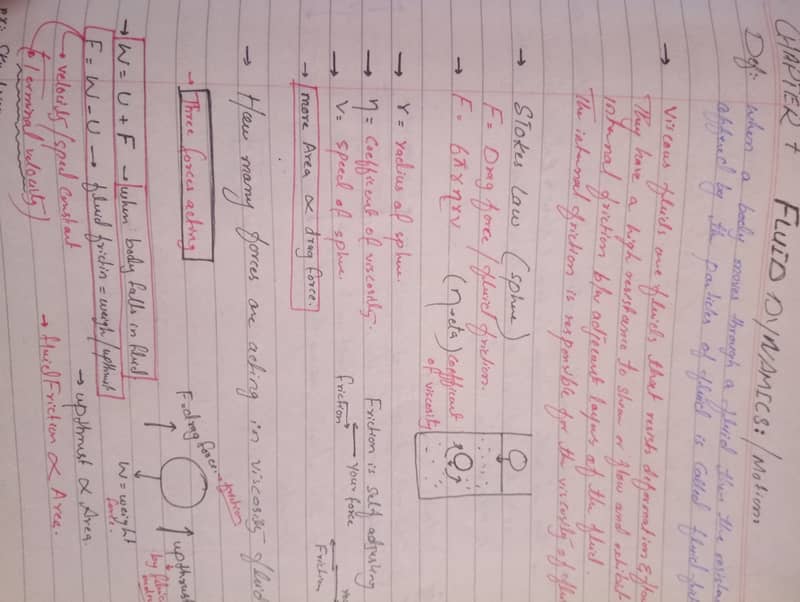 CHAPTER 7 FLUID DYNAMICS:/Motion
Def: when a body moves through a fluid then the resistance
offered by the particles of fluid is called fluid
→ Viscous fluids are fluids that resists deformation & flow
They have a high resistance to shear or flow and exhibit
internal friction b/w adjacent layers of the fluid.
The internal friction is responsible for the viscosity of
→ Stokes law (sphere)
F = Drag force / fluid friction.
→ F = 6πrηv (η→eta) coefficient
of viscosity
→ r = radius of sphere.
→ η = coefficient of viscosity.
→ V = speed of sphere.
Friction is self adjusting
friction → ← your force
Friction
→ more Area ∝ drag force.
→ How many forces are acting in viscosity fluid
→ Three forces acting
F = drag force. → friction
upthrust
by fluid
W = weight
→ W = U + F → when body falls in fluid
F = W - U → fluid friction = weigh / upthrust
→ velocity/speed constant
(terminal velocity)
→ upthrust ∝ Area.
→ fluid friction ∝ Area.